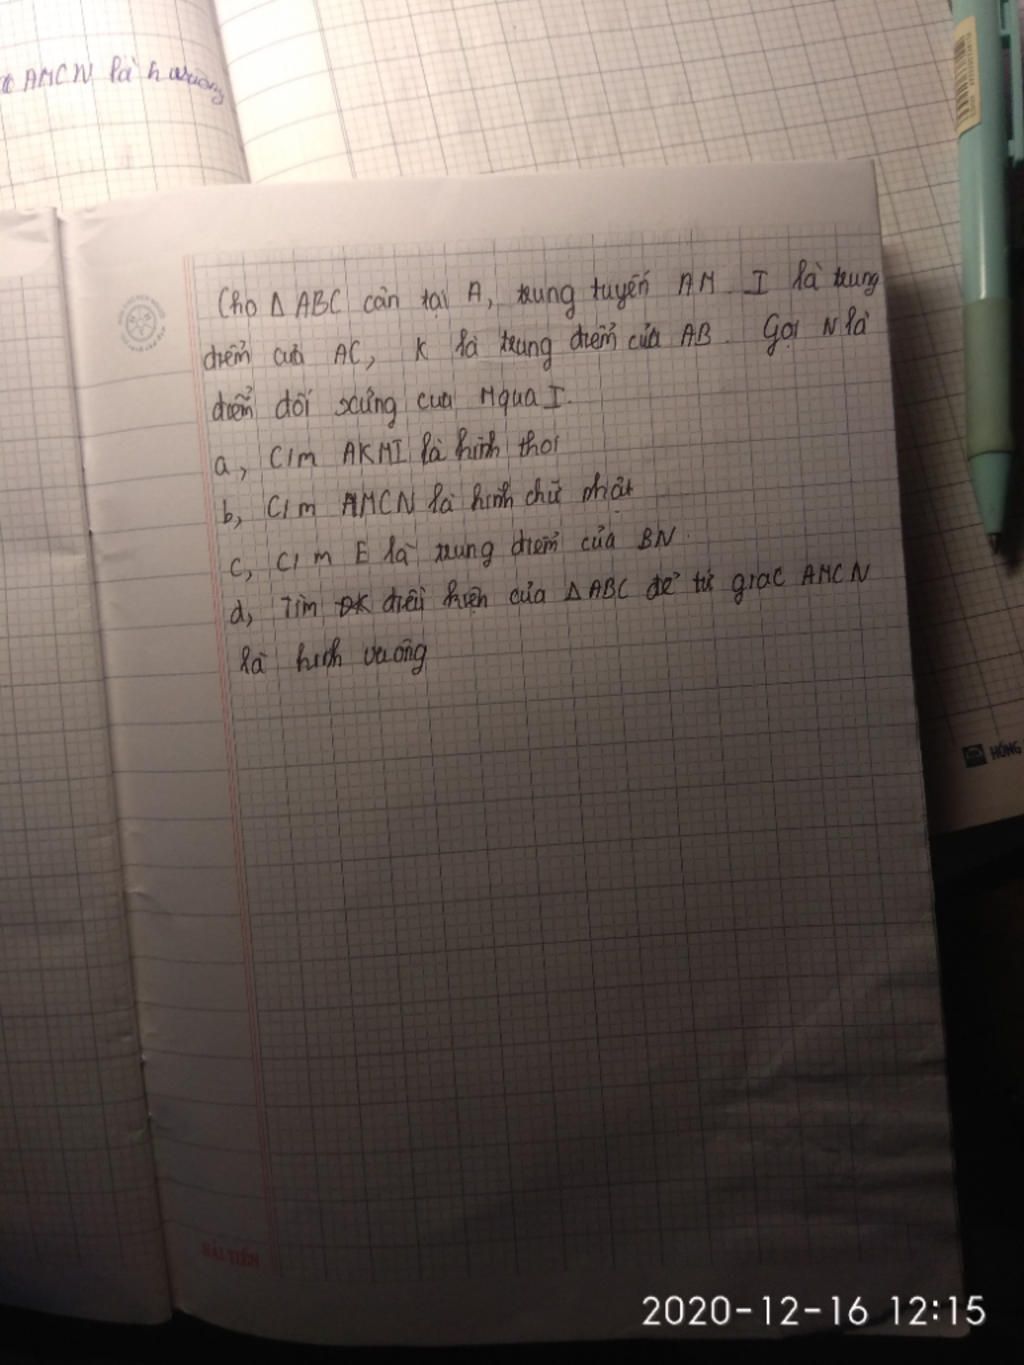 AMCN là h vuông
Cho Δ ABC cân tại A, trung tuyến AM. I là trung
điểm của AC, K là trung điểm của AB. Gọi N là
điểm đối xứng cua M qua I.
a, C/m AKMI là hình thoi
b, C/m AMCN là hình chữ nhật
c, C/m E là trung điểm của BN.
d, Tìm ĐK điều kiện của Δ ABC để tứ giác AMCN
là hình vuông
HỒNG
HẢI TIẾN
2020-12-16 12:15